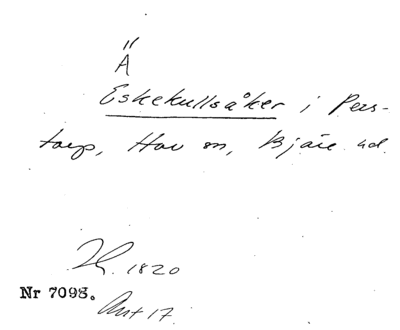 Ä
Eskekullsåker i Pers-
torp, Hov sn, Bjäre hd.
1820
Nr 7098.
Ant 17